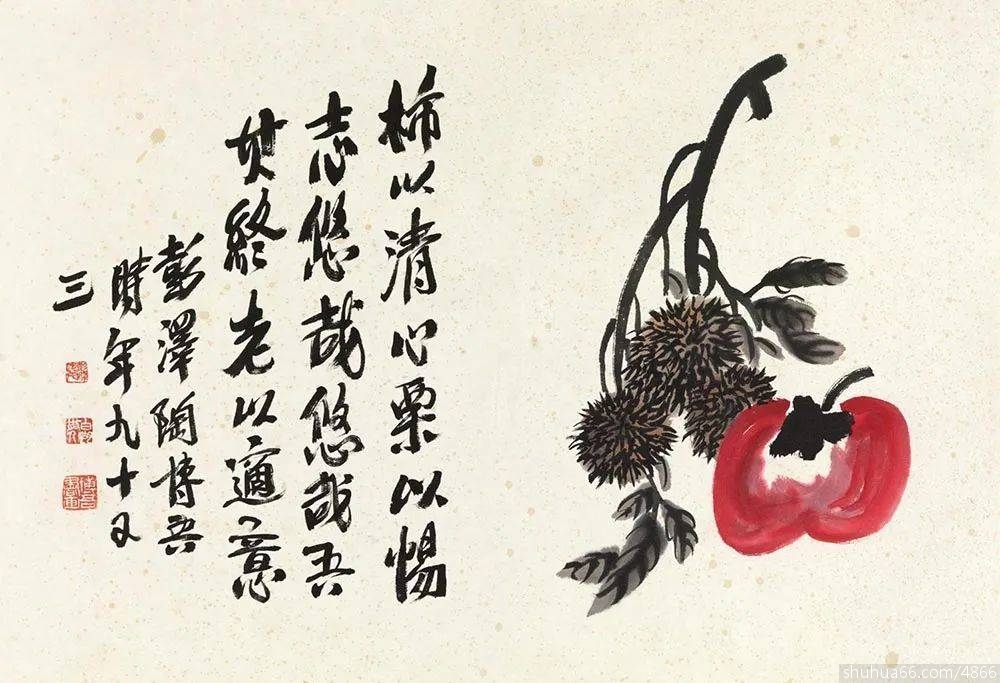 柿以清心栗以惕
志悠哉悠哉吾
其終老以適意
彭澤陶博吾
時年九十又
三
shuhua66.com/4866